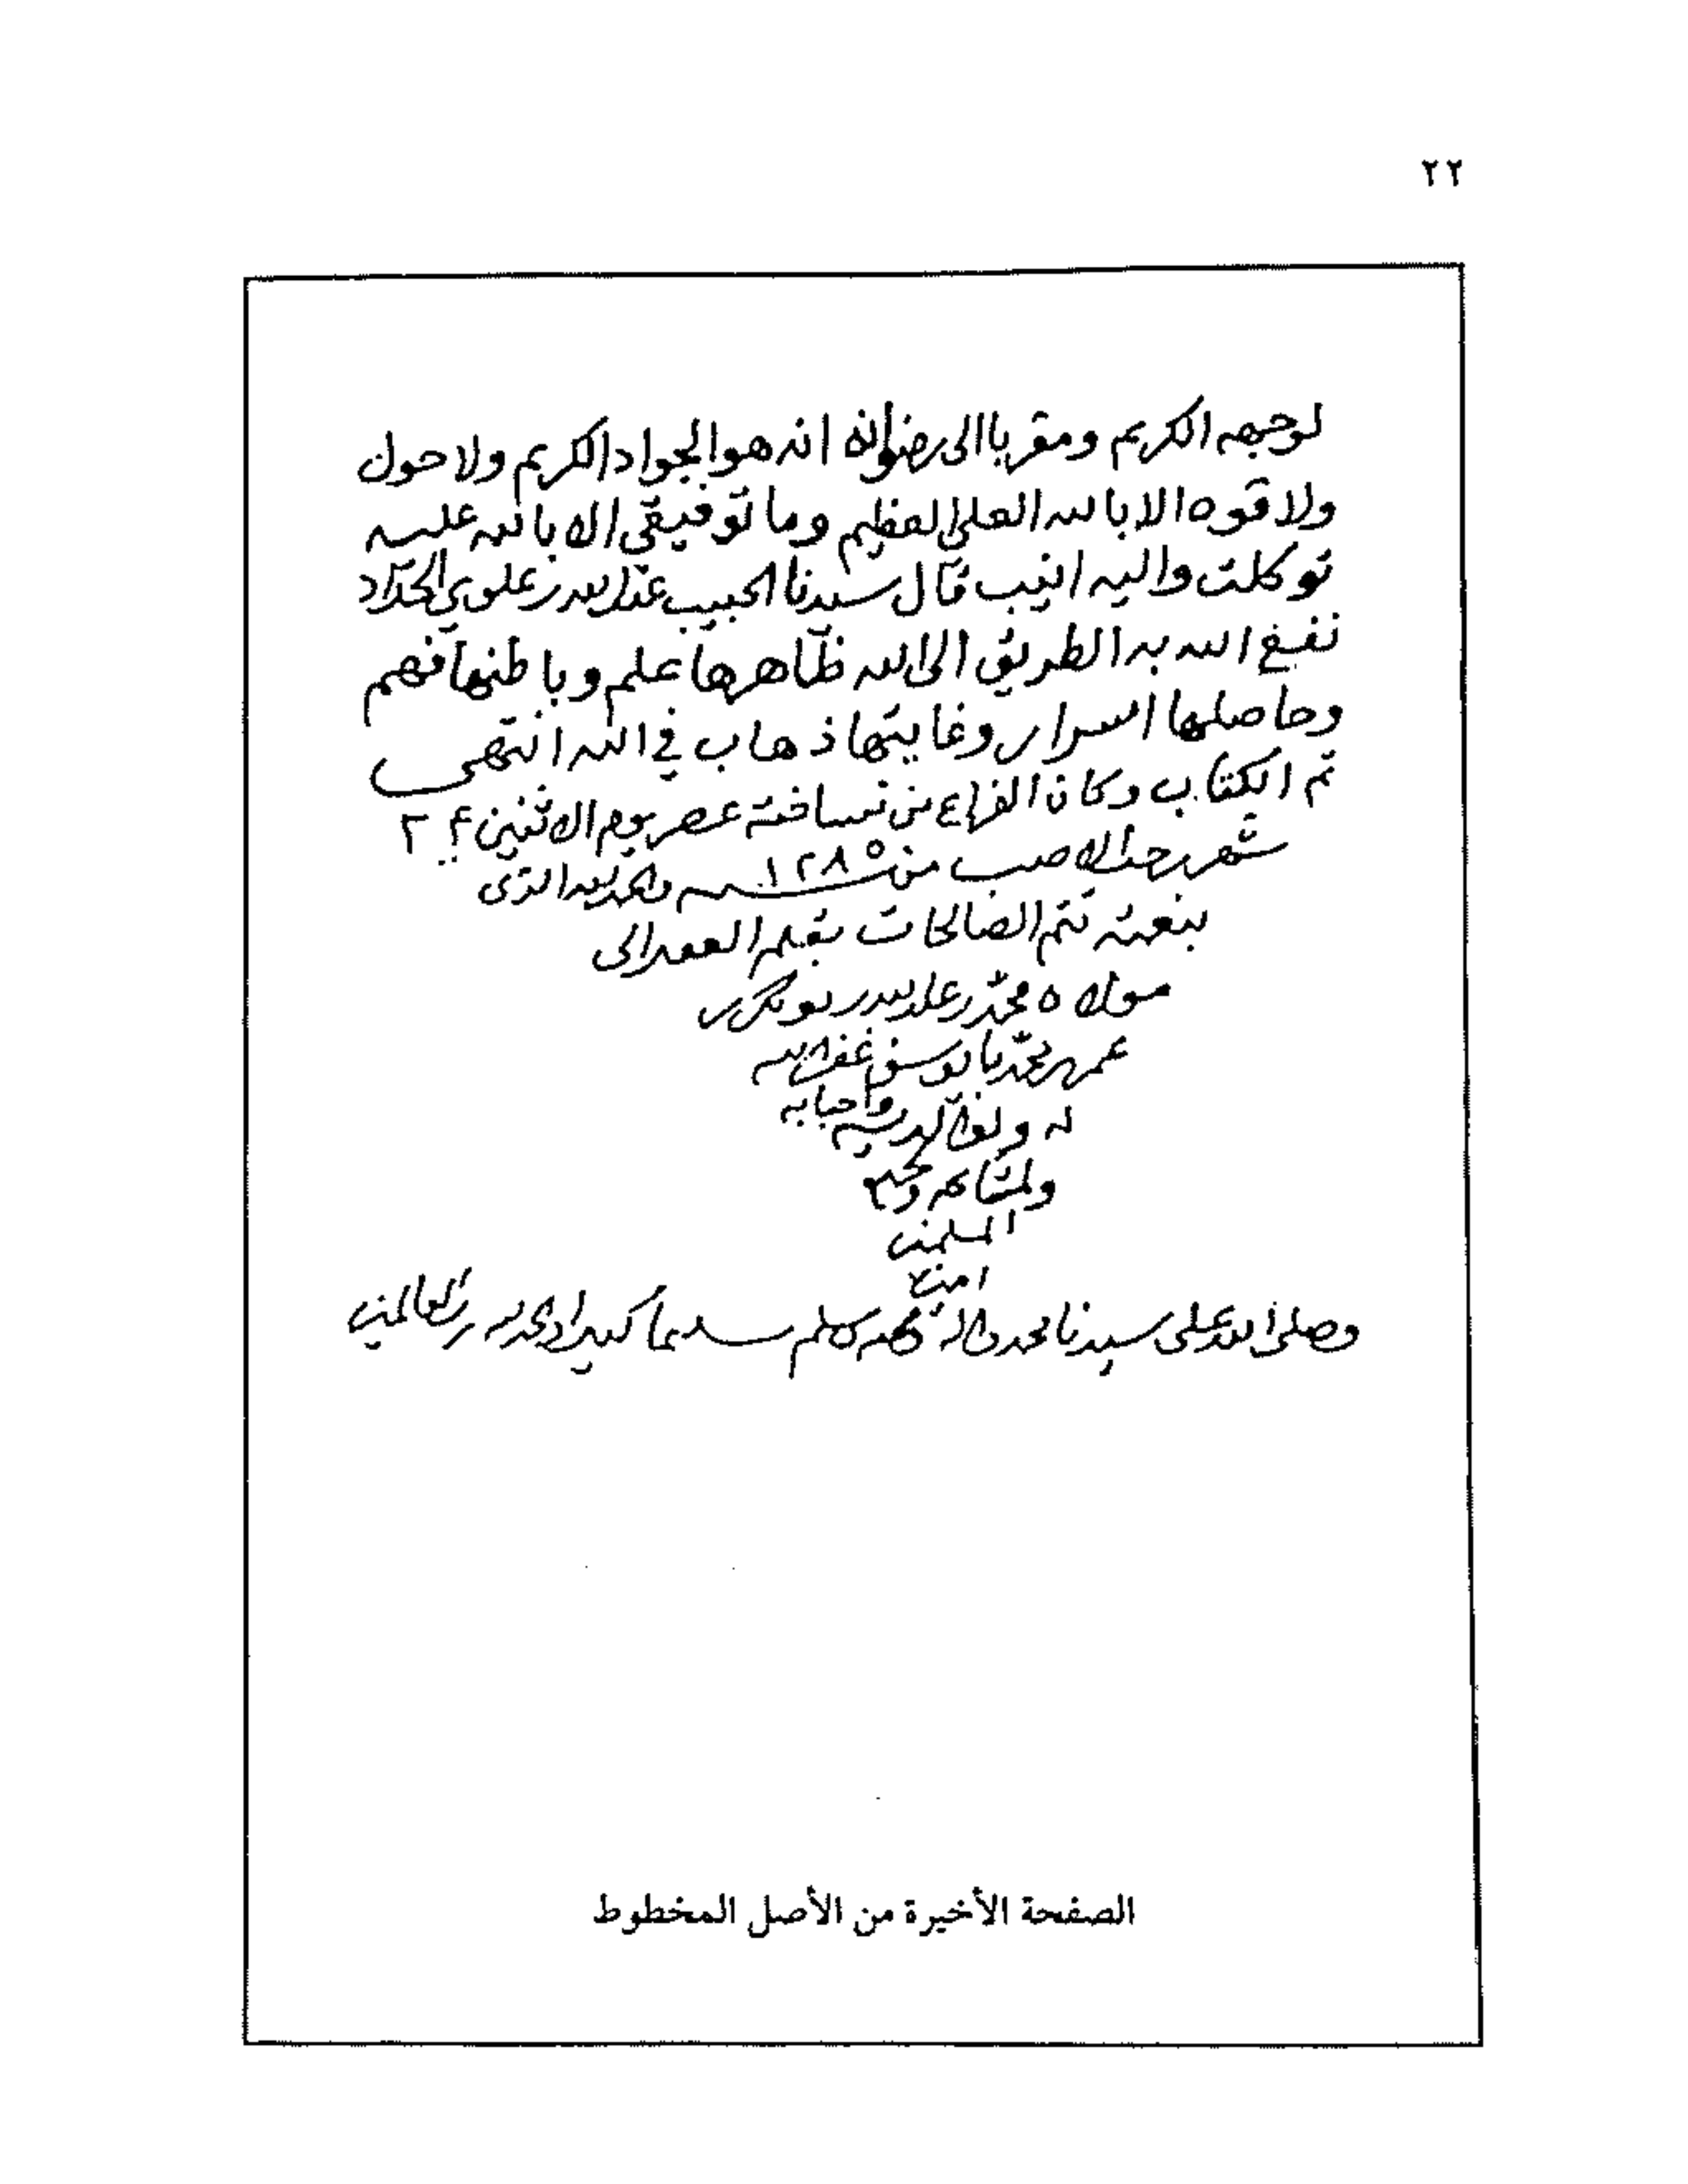 ٢٢
لوجهه الكريم ومقربا الى رضوانه انه هو الجواد الكريم ولا حول
ولا قوه الا بالله العلي العظيم وما توفيقي الا بالله عليه
توكلت واليه انيب قال سيدنا الحبيب عبدالله بن علوي الحداد
نفع الله به الطريق الى الله ظاهرها علم وباطنها فهم
وحاصلها اسرار وغايتها ذهاب في الله انتهى
تم الكتاب وكان الفراغ من نساخته عصر يوم الاثنين
شهر رجب الاصب من سنه ١٢٨٥ والحمد لله الذى
بنعمته تتم الصالحات بقلم الفقير الى
مولاه محمد بن عبدالله بن بوبكر بن
عمر بن محمد با يوسف غفر الله
له ولوالديه واحبابه
ولمشايخه وجميع
المسلمين
امين
وصلى الله على سيدنا محمد واله وصحبه وسلم تسليما كثيرا والحمد لله رب العالمين
الصفحة الأخيرة من الأصل المخطوط